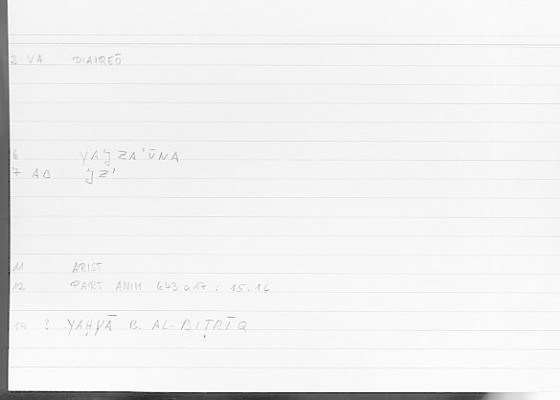 2 VA DIAIREŌ
6 YAǦZA'ŪNA
7 AB ǦZ'
11 ARIST
12 PART ANIM 643 a17 : 15.16
? YAḤYĀ B. AL-BIṬRĪQ